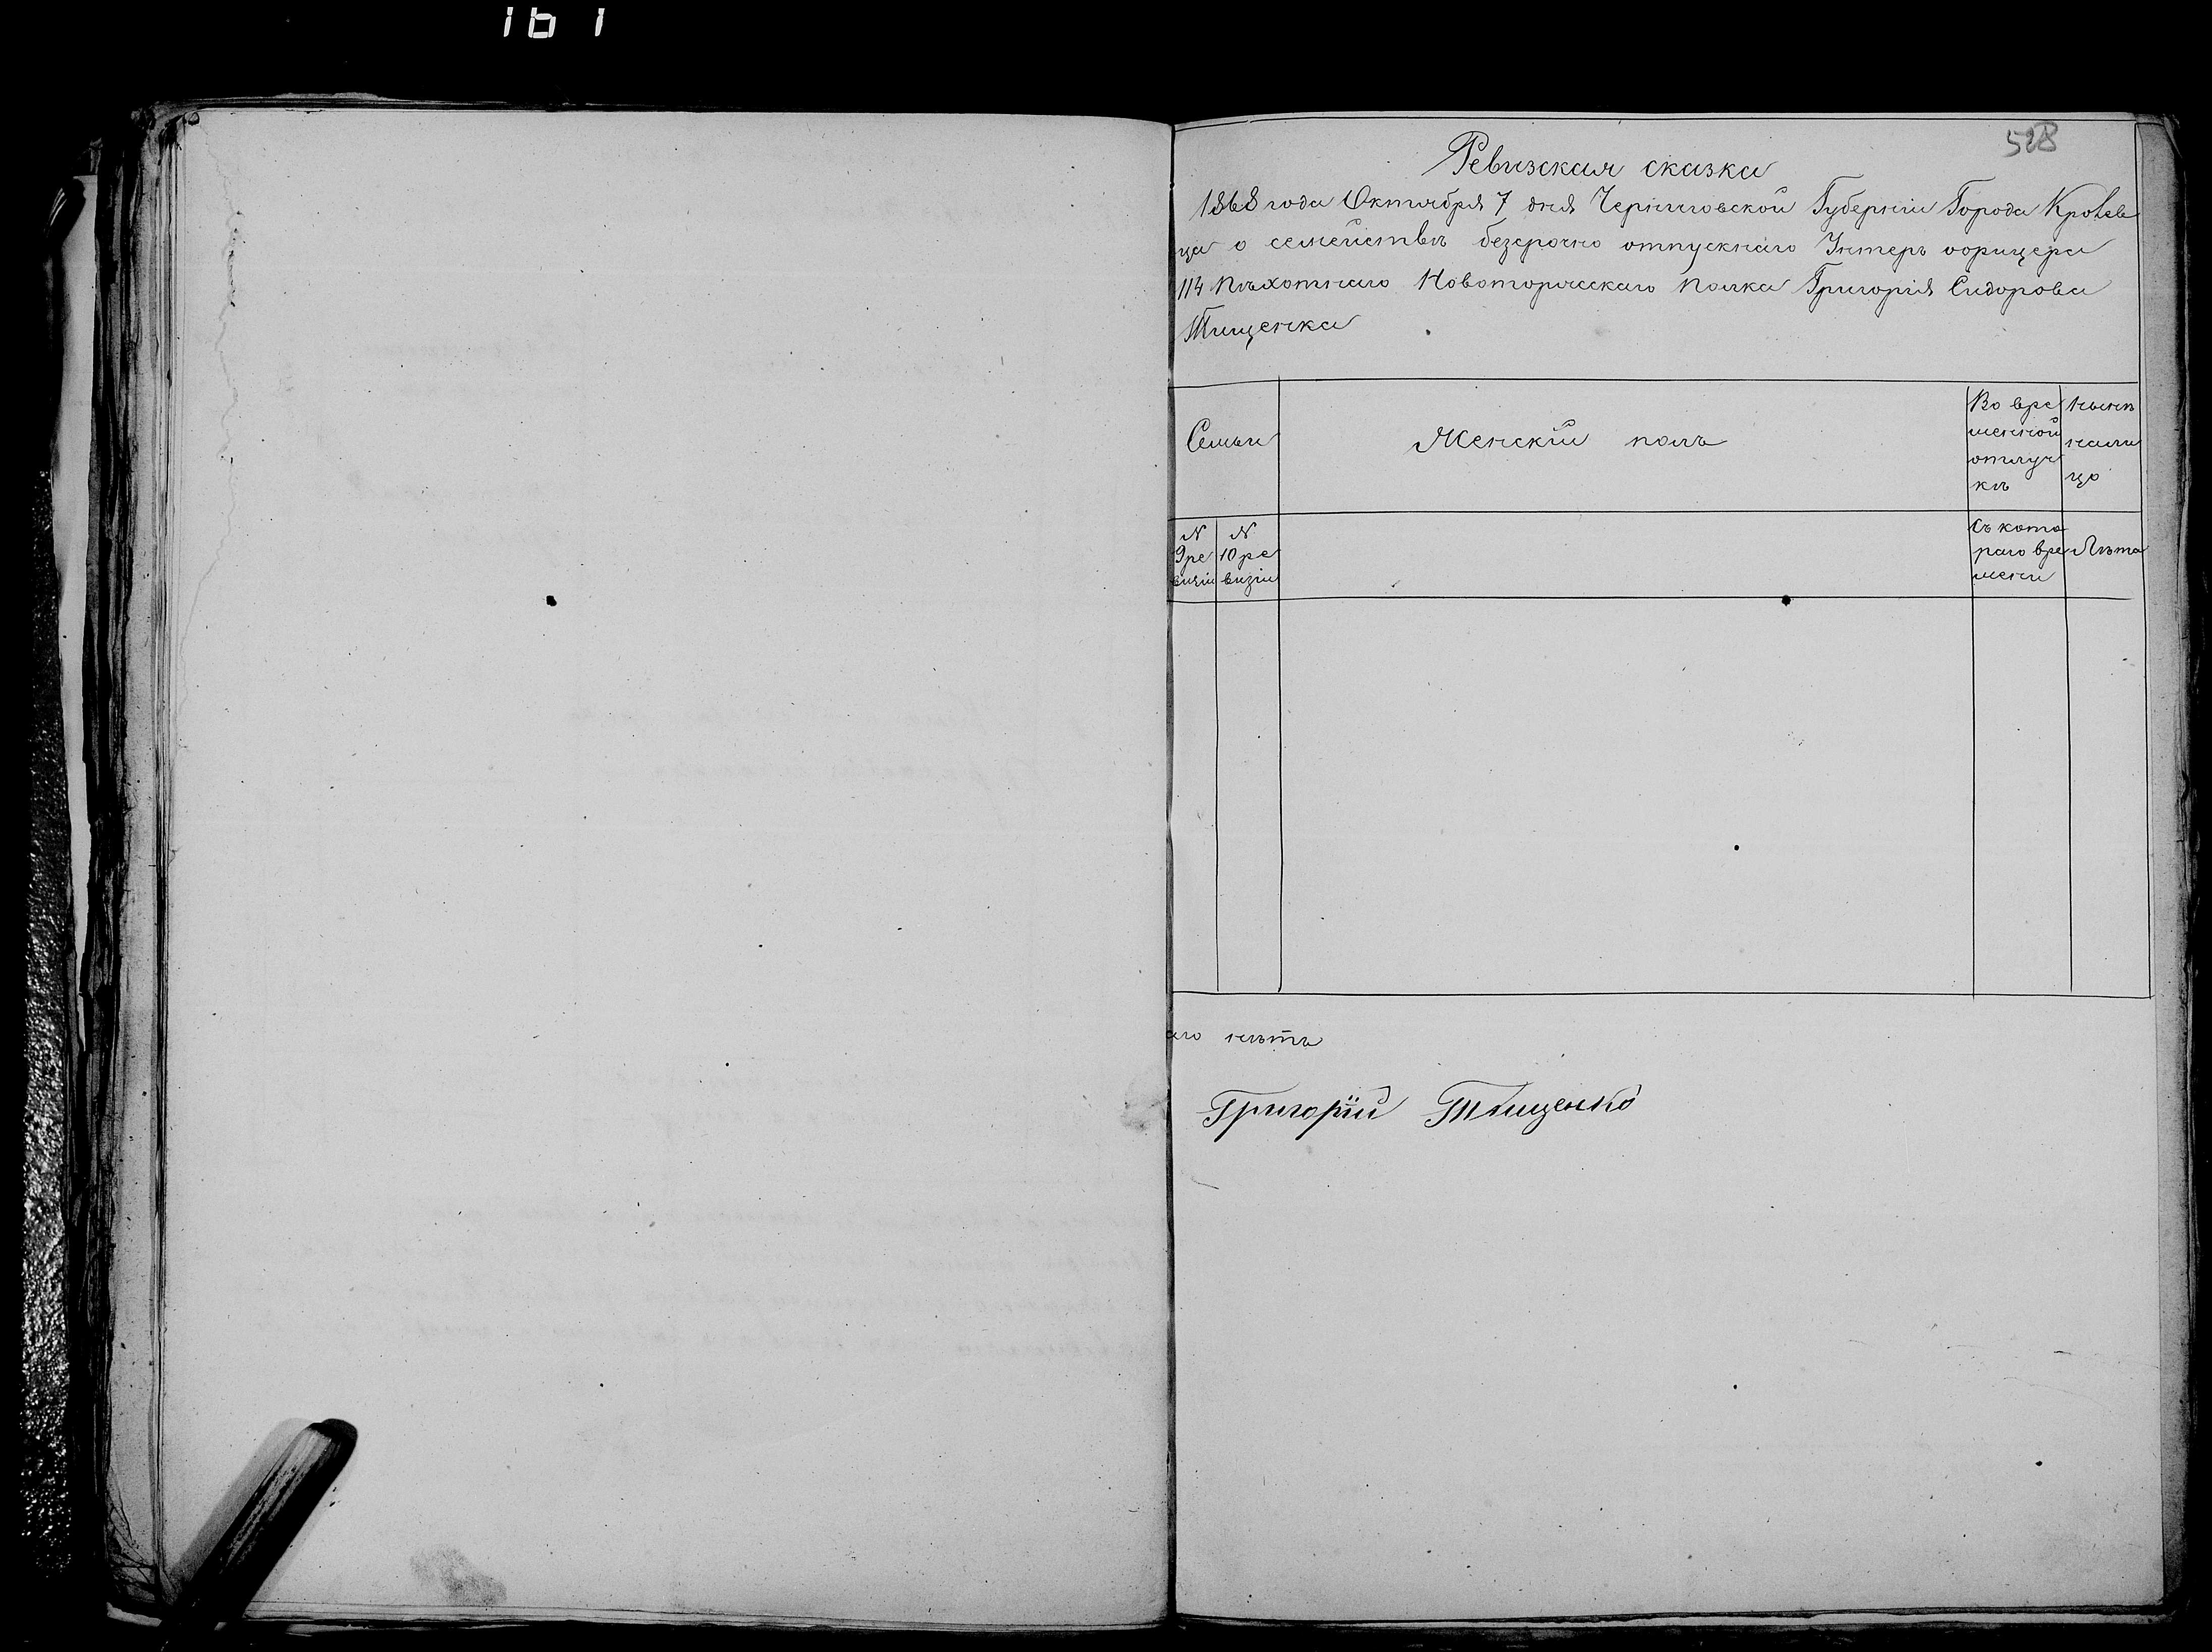 161
528
Ревизская сказка
1868 года Октября 7 дня Черниговской Губерніи Города Кролев
ца о семействѣ безсрочно отпускнаго Унтеръ оорицера
114 Пѣхотнаго Новоторжскаго полка Григорія Сидорова
Тищенка
Семьи
Женскій полъ
Во вре
менной
отлуч
кѣ
Нынѣ
нали
цо
N
9 ре
визіи
N
10 ре
визіи
Съ кото
раго вре
мени
Лѣта
аго нѣтъ
Григорій Тищенко